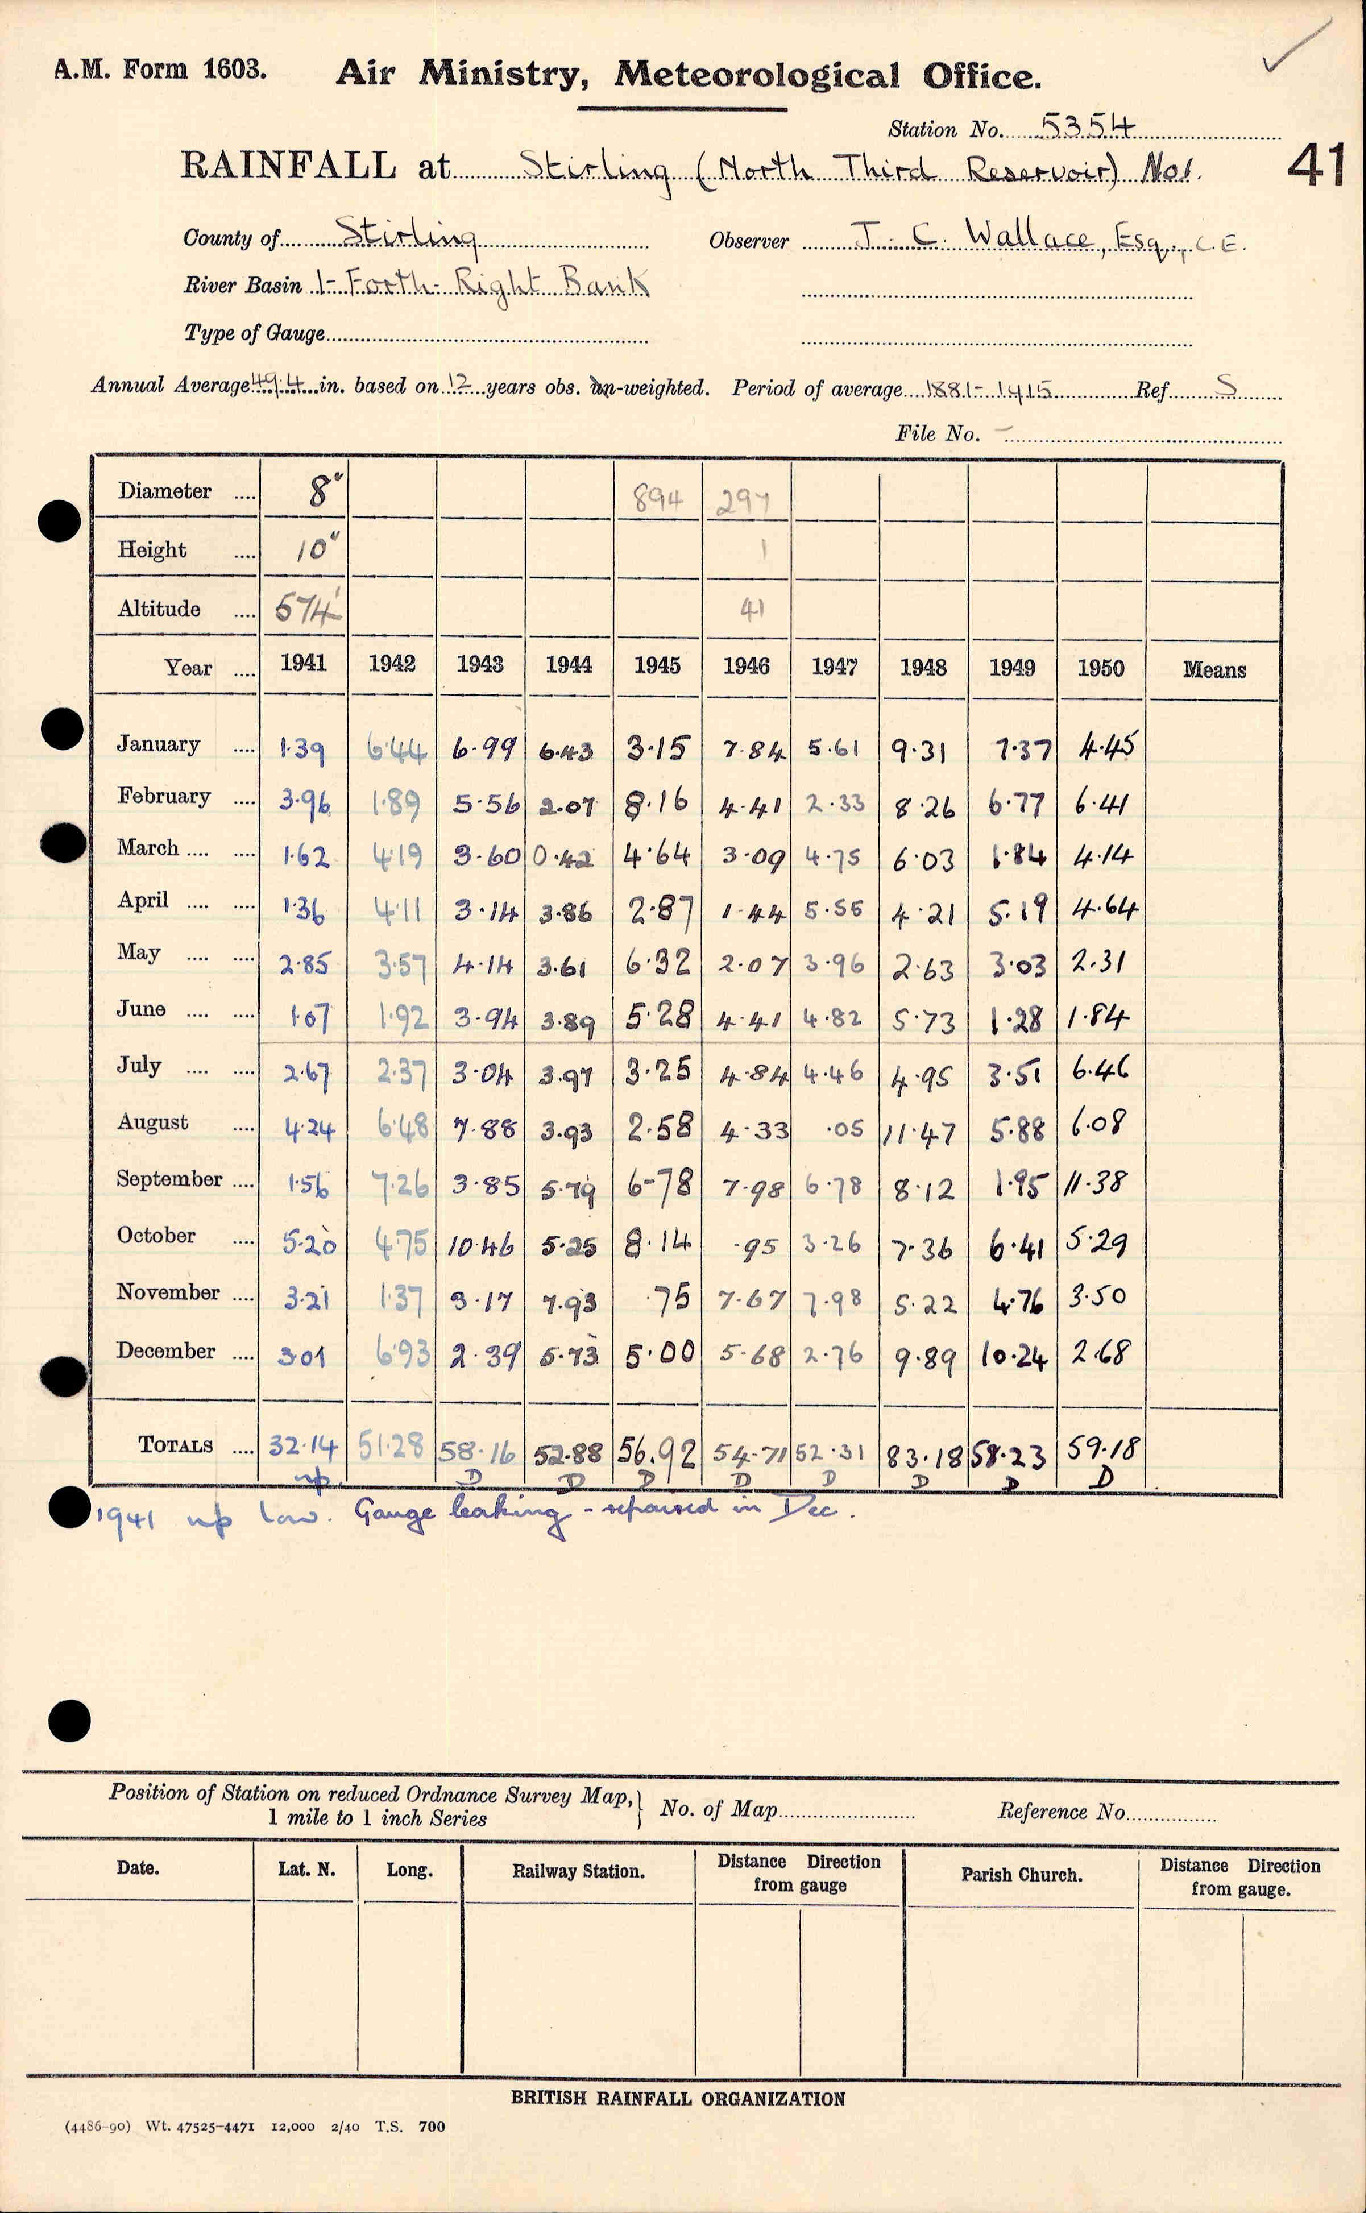 A.M. Form 1603. Air Ministry, Meteorological Office.
Station No. 5354
RAINFALL at Stirling (North Third Reservoir) No1. 41
County of Stirling Observer J. C. Wallace, Esq., C.E.
River Basin 1-Forth-Right Bank
Type of Gauge
Annual Average 49.4 in. based on 12 years obs. un-weighted. Period of average 1881-1915 Ref S
File No. -
Diameter .... 8" 894 297
Height .... 10" 1
Altitude .... 574' 41
Year .... 1941 1942 1943 1944 1945 1946 1947 1948 1949 1950 Means
January .... 1.39 6.44 6.99 6.43 3.15 7.84 5.61 9.31 7.37 4.45
February .... 3.96 1.89 5.56 2.07 8.16 4.41 2.33 8.26 6.77 6.41
March .... .... 1.62 4.19 3.60 0.42 4.64 3.09 4.75 6.03 1.84 4.14
April .... .... 1.36 4.11 3.14 3.86 2.87 1.44 5.55 4.21 5.19 4.64
May .... .... 2.85 3.57 4.14 3.61 6.32 2.07 3.96 2.63 3.03 2.31
June .... .... 1.07 1.92 3.94 3.89 5.28 4.41 4.82 5.73 1.28 1.84
July .... .... 2.67 2.37 3.04 3.97 3.25 4.84 4.46 4.95 3.51 6.46
August .... 4.24 6.48 7.88 3.93 2.58 4.33 .05 11.47 5.88 6.08
September .... 1.56 7.26 3.85 5.79 6-78 7.98 6.78 8.12 1.95 11.38
October .... 5.20 4.75 10.46 5.25 8.14 .95 3.26 7.36 6.41 5.29
November .... 3.21 1.37 3.17 7.93 .75 7.67 7.98 5.22 4.76 3.50
December .... 3.01 6.93 2.39 5.73 5.00 5.68 2.76 9.89 10.24 2.68
TOTALS .... 32.14 51.28 58.16 52.88 56.92 54.71 52.31 83.18 58.23 59.18
np. D D D D D D D D
1941 np low. Gauge leaking - repaired in Dec.
Position of Station on reduced Ordnance Survey Map, } No. of Map Reference No.
1 mile to 1 inch Series
Date. Lat. N. Long. Railway Station. Distance Direction from gauge Parish Church. Distance Direction from gauge.
BRITISH RAINFALL ORGANIZATION
(4486-90) Wt. 47525-4471 12,000 2/40 T.S. 700